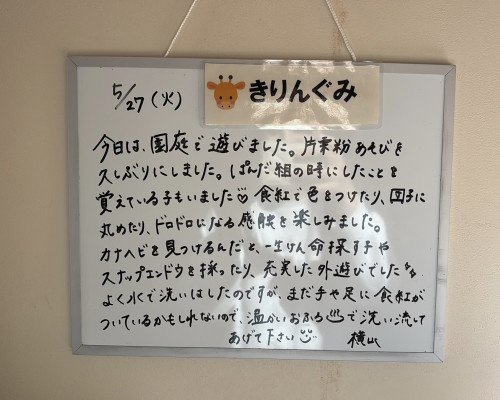 5/27(火)
きりんぐみ
今日は、園庭で遊びました。片栗粉あそびを
久しぶりにしました。ぱんだ組の時にしたことを
覚えている子もいました♡食紅で色をつけたり、団子に
丸めたり、ドロドロになる感触を楽しみました。
カナヘビを見つけるんだと、一生けん命探す子や
スナップエンドウを採ったり、充実した外遊びでした
よく水で洗いはしたのですが、まだ手や足に食紅が
ついているかもしれないので、温かいおふろ♨で洗い流して
あげて下さい
横山